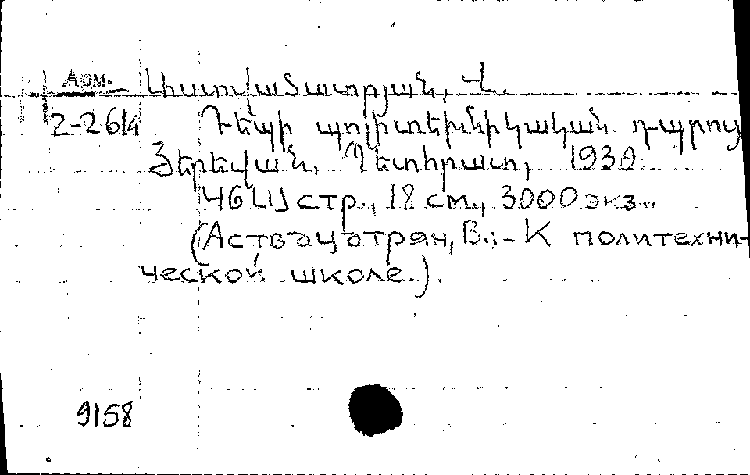 Арм.
Աստվածատրյան, Վ.
2-2614 Դեպի պոլիտեխնիկական դպրոց
Յերեվան, Պետհրատ, 1930.
146 [1] стр., 18 см., 3000 экз.
(Аствацатрян, В.:- К политехни-
ческой школе.).
9158